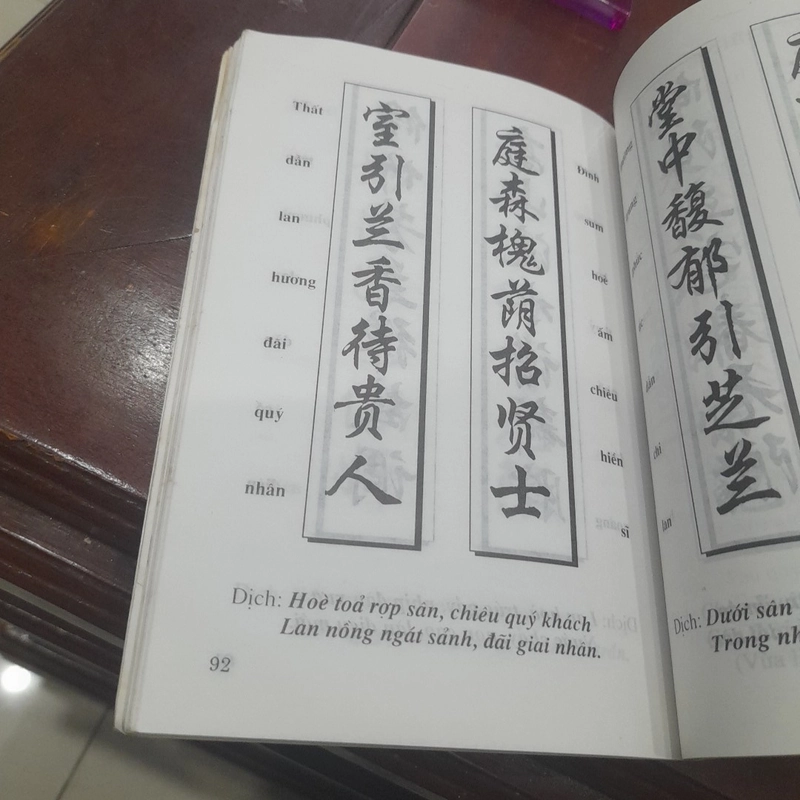 Thất
dẫn
lan
hương
đãi
quý
nhân
室引兰香待贵人
庭森槐荫招贤士
Đình
sum
hoè
ấm
chiêu
hiền
sĩ
Dịch: Hoè toả rợp sân, chiêu quý khách
Lan nồng ngát sảnh, đãi giai nhân.
92
堂中馥郁引芝兰
dẫn
chi
lan
Dịch: Dưới sân
Trong nh